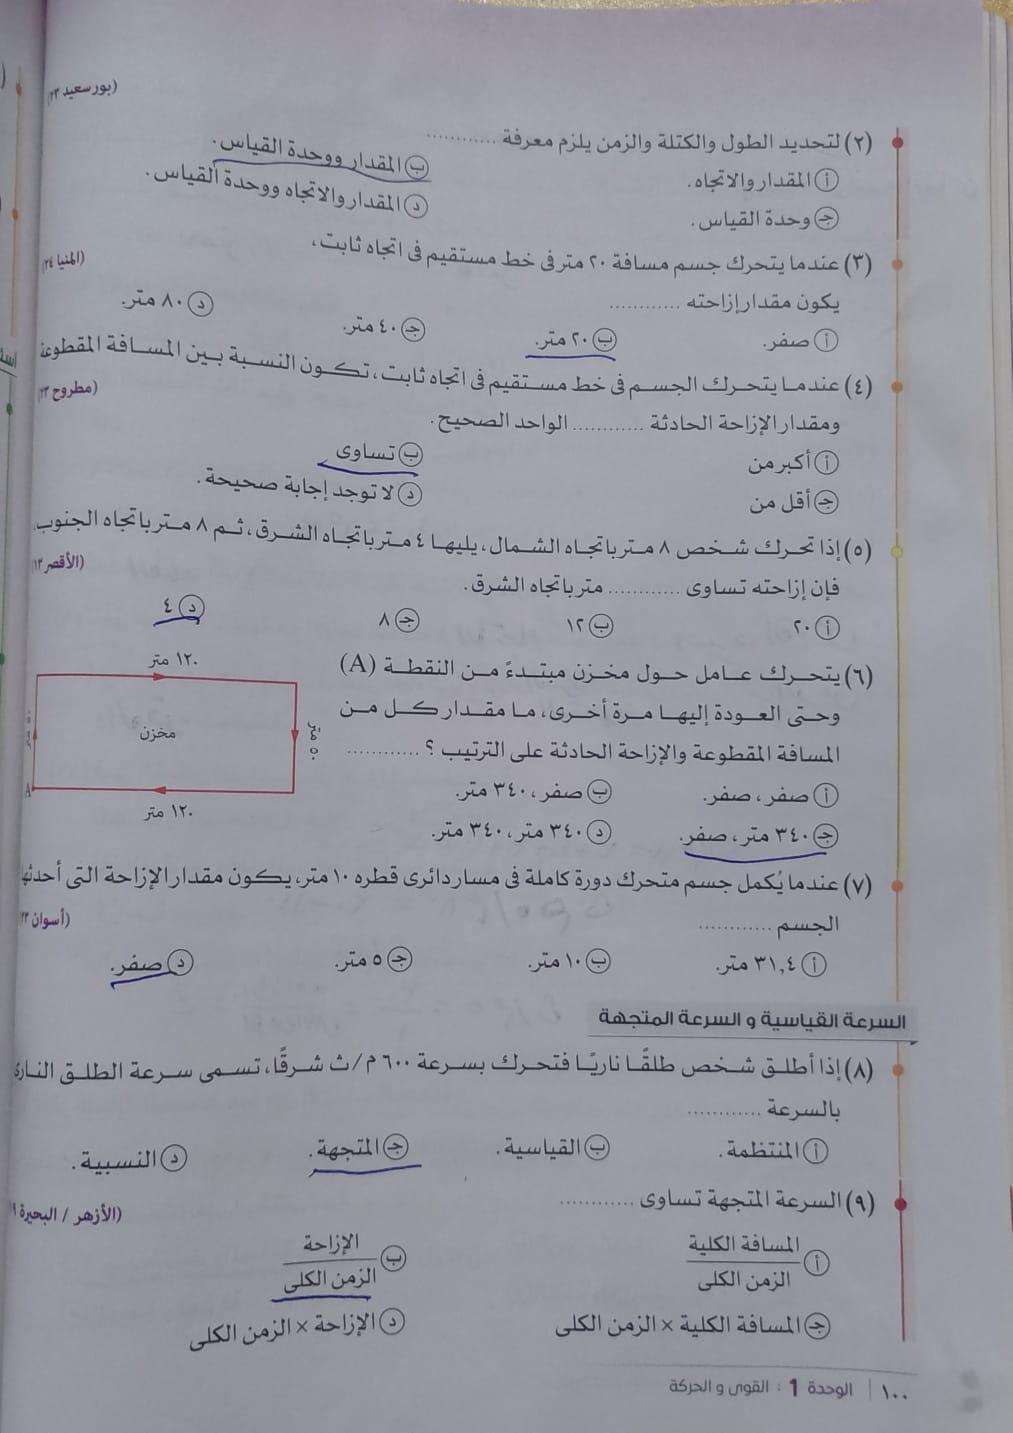 (بورسعيد ٢٣)
(٢) لتحديد الطول والكتلة والزمن يلزم معرفة ............
أ المقدار والاتجاه.
ب المقدار ووحدة القياس.
ج وحدة القياس.
د المقدار والاتجاه ووحدة القياس.
(٣) عندما يتحرك جسم مسافة ٢٠ متر فى خط مستقيم فى اتجاه ثابت،
(المنيا ٢٤)
يكون مقدار إزاحته ............
أ صفر. ب ٢٠ متر. ج ٤٠ متر. د ٨٠ متر.
(٤) عندما يتحرك الجسم فى خط مستقيم فى اتجاه ثابت، تكون النسبة بين المسافة المقطوعة
ومقدار الإزاحة الحادثة ............ الواحد الصحيح.
(مطروح ٢٣)
أ أكبر من
ب تساوى
ج أقل من
د لا توجد إجابة صحيحة.
(٥) إذا تحرك شخص ٨ متر باتجاه الشمال، يليها ٤ متر باتجاه الشرق، ثم ٨ متر باتجاه الجنوب،
فإن إزاحته تساوى ............ متر باتجاه الشرق.
(الأقصر ١٣)
أ ٢٠ ب ١٢ ج ٨ د ٤
(٦) يتحرك عامل حول مخزن مبتدءً من النقطة (A)
وحتى العودة إليها مرة أخرى، ما مقدار كل من
المسافة المقطوعة والإزاحة الحادثة على الترتيب ؟ ............
١٢٠ متر
مخزن
٥٠ متر
A
١٢٠ متر
أ صفر، صفر.
ب صفر، ٣٤٠ متر.
ج ٣٤٠ متر، صفر.
د ٣٤٠ متر، ٣٤٠ متر.
(٧) عندما يُكمل جسم متحرك دورة كاملة فى مسار دائرى قطره ١٠ متر، يكون مقدار الإزاحة التى أحدثها
الجسم ............
(أسوان ٢٣)
أ ٣١,٤ متر. ب ١٠ متر. ج ٥ متر. د صفر.
السرعة القياسية و السرعة المتجهة
(٨) إذا أطلق شخص طلقًا ناريًا فتحرك بسرعة ٦٠٠ م/ث شرقًا، تسمى سرعة الطلق النارى
بالسرعة ............
أ المنتظمة. ب القياسية. ج المتجهة. د النسبية.
(٩) السرعة المتجهة تساوى ............
(الأزهر / البحيرة
أ المسافة الكلية
الزمن الكلى
ب الإزاحة
الزمن الكلى
ج المسافة الكلية × الزمن الكلى
د الإزاحة × الزمن الكلى
١٠٠ | الوحدة 1 : القوى و الحركة